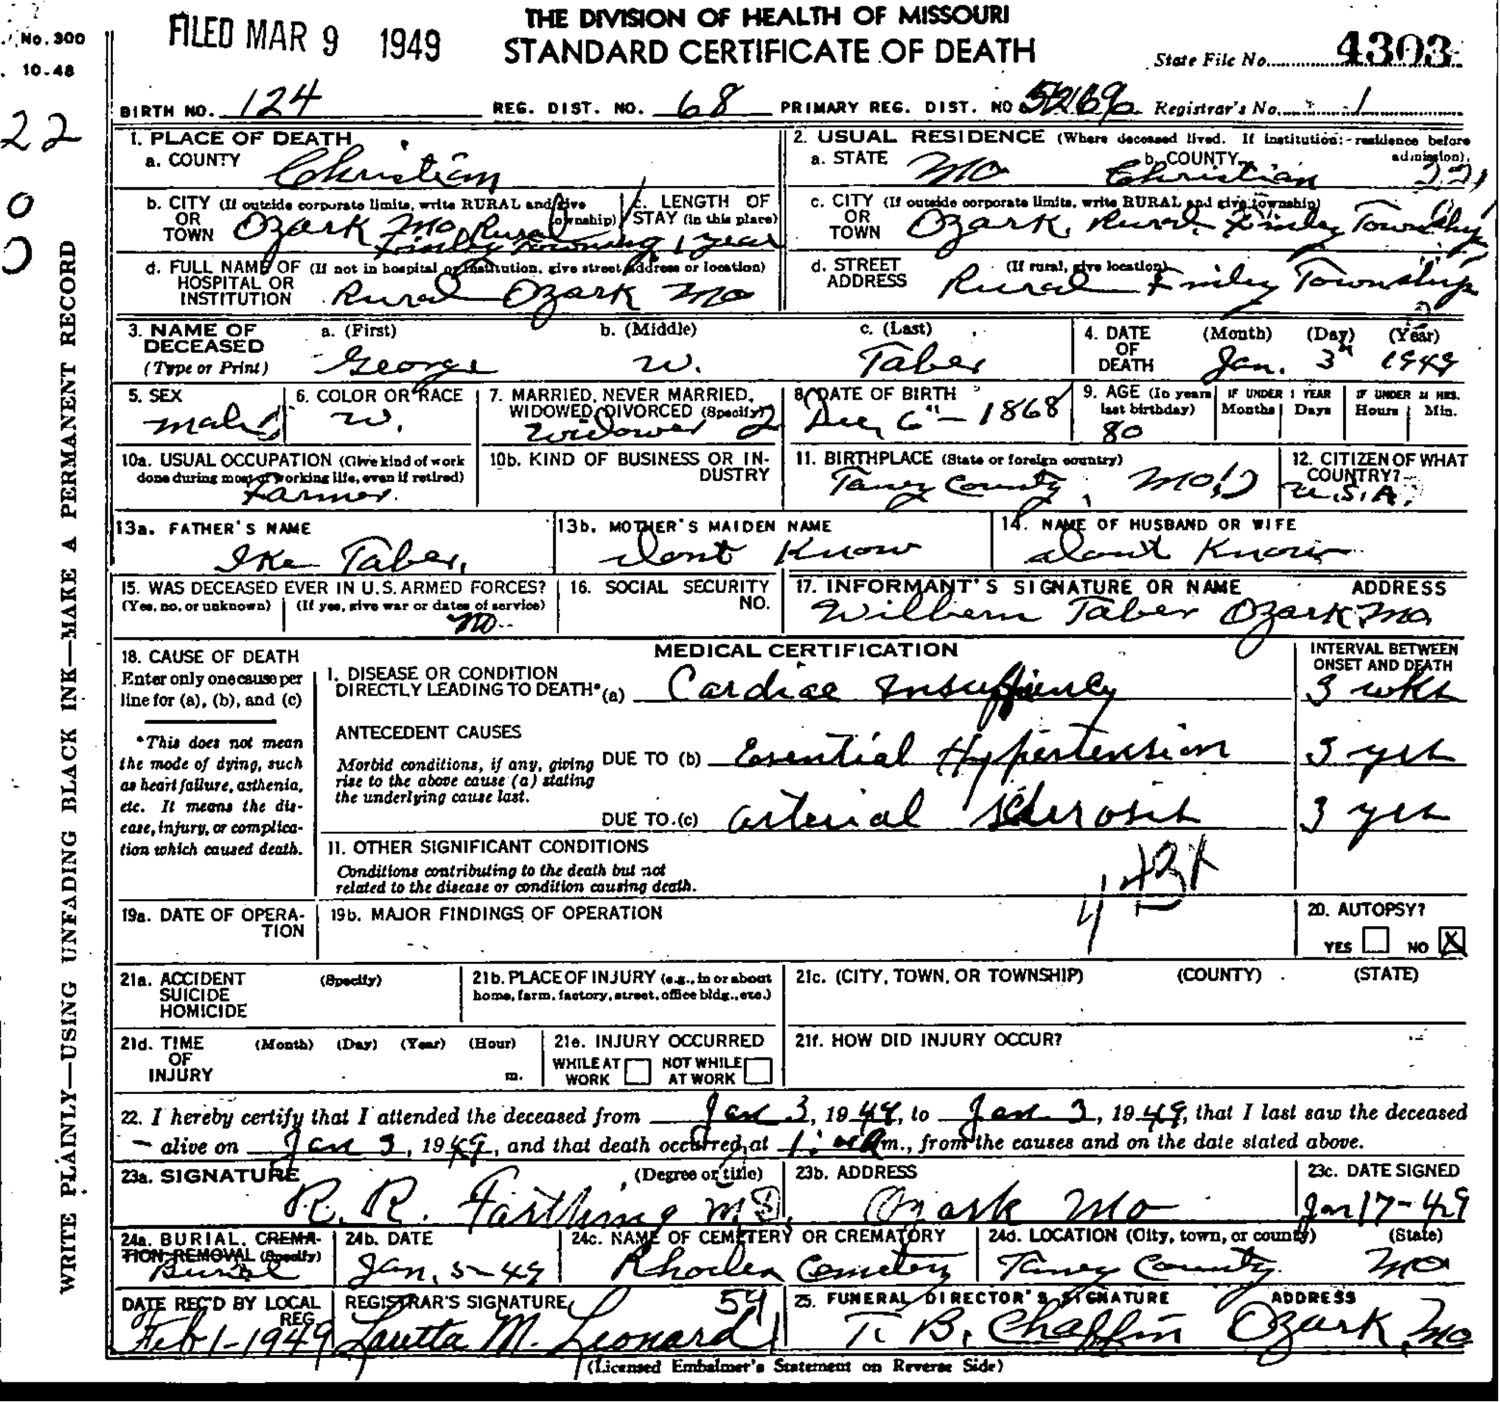 THE DIVISION OF HEALTH OF MISSOURI
No. 300
FILED MAR 9 1949
STANDARD CERTIFICATE OF DEATH
State File No. 4303
10-48
BIRTH NO. 124 REG. DIST. NO. 68 PRIMARY REG. DIST. NO. Registrar's No. 1
22
1. PLACE OF DEATH
a. COUNTY Christian
2. USUAL RESIDENCE (Where deceased lived. If institution: residence before admission).
a. STATE Mo b. COUNTY Christian
0
b. CITY (If outside corporate limits, write RURAL and give township) OR TOWN Ozark Mo Rural
c. LENGTH OF STAY (in this place) 1 year
c. CITY (If outside corporate limits, write RURAL and give township) OR TOWN Ozark, Rural, Finley Township
0
d. FULL NAME OF HOSPITAL OR INSTITUTION (If not in hospital or institution, give street address or location) Rural Ozark Mo
d. STREET ADDRESS (If rural, give location) Rural Finley Township
3. NAME OF DECEASED (Type or Print)
a. (First) George b. (Middle) W. c. (Last) Taber
4. DATE OF DEATH (Month) (Day) (Year) Jan. 3rd 1949
5. SEX Male
6. COLOR OR RACE W.
7. MARRIED, NEVER MARRIED, WIDOWED, DIVORCED (Specify) Widower 2
8. DATE OF BIRTH Dec 6th - 1868
9. AGE (In years last birthday) 80
IF UNDER 1 YEAR Months Days
IF UNDER 24 HRS. Hours Min.
10a. USUAL OCCUPATION (Give kind of work done during most of working life, even if retired) Farmer.
10b. KIND OF BUSINESS OR INDUSTRY
11. BIRTHPLACE (State or foreign country) Taney County, Mo.
12. CITIZEN OF WHAT COUNTRY? U.S.A.
13a. FATHER'S NAME Ike Taber,
13b. MOTHER'S MAIDEN NAME Dont Know
14. NAME OF HUSBAND OR WIFE Dont Know
15. WAS DECEASED EVER IN U.S. ARMED FORCES? (Yes, no, or unknown) (If yes, give war or dates of service) No
16. SOCIAL SECURITY NO.
17. INFORMANT'S SIGNATURE OR NAME ADDRESS
Wilbern Taber Ozark, Mo.
MEDICAL CERTIFICATION
18. CAUSE OF DEATH
Enter only one cause per line for (a), (b), and (c)
*This does not mean the mode of dying, such as heart failure, asthenia, etc. It means the disease, injury, or complication which caused death.
INTERVAL BETWEEN ONSET AND DEATH
I. DISEASE OR CONDITION DIRECTLY LEADING TO DEATH* (a) Cardiac Insufficiency 3 wks
ANTECEDENT CAUSES
Morbid conditions, if any, giving rise to the above cause (a) stating the underlying cause last.
DUE TO (b) Essential Hypertension 3 yrs
DUE TO (c) Arterial Sclerosis 3 yrs
II. OTHER SIGNIFICANT CONDITIONS
Conditions contributing to the death but not related to the disease or condition causing death.
19a. DATE OF OPERATION
19b. MAJOR FINDINGS OF OPERATION
20. AUTOPSY?
YES NO X
21a. ACCIDENT SUICIDE HOMICIDE (Specify)
21b. PLACE OF INJURY (e.g., in or about home, farm, factory, street, office bldg., etc.)
21c. (CITY, TOWN, OR TOWNSHIP) (COUNTY) (STATE)
21d. TIME OF INJURY (Month) (Day) (Year) (Hour) m.
21e. INJURY OCCURRED
WHILE AT WORK NOT WHILE AT WORK
21f. HOW DID INJURY OCCUR?
22. I hereby certify that I attended the deceased from Jan 3, 1949, to Jan 3, 1949, that I last saw the deceased
alive on Jan 3, 1949, and that death occurred at 1:00 A m., from the causes and on the date stated above.
23a. SIGNATURE (Degree or title) R. R. Farthing M.D.
23b. ADDRESS Ozark Mo
23c. DATE SIGNED Jan 17-49
24a. BURIAL, CREMATION REMOVAL (Specify) Burial
24b. DATE Jan, 5-49
24c. NAME OF CEMETERY OR CREMATORY Cemetery
24d. LOCATION (City, town, or county) (State) Taney County. Mo
DATE REC'D BY LOCAL REG. Feb 1-1949
REGISTRAR'S SIGNATURE Loretta M. Leonard
25. FUNERAL DIRECTOR'S SIGNATURE ADDRESS
T. B. Chaffin Ozark, Mo
(Licensed Embalmer's Statement on Reverse Side)
WRITE PLAINLY—USING UNFADING BLACK INK—MAKE A PERMANENT RECORD